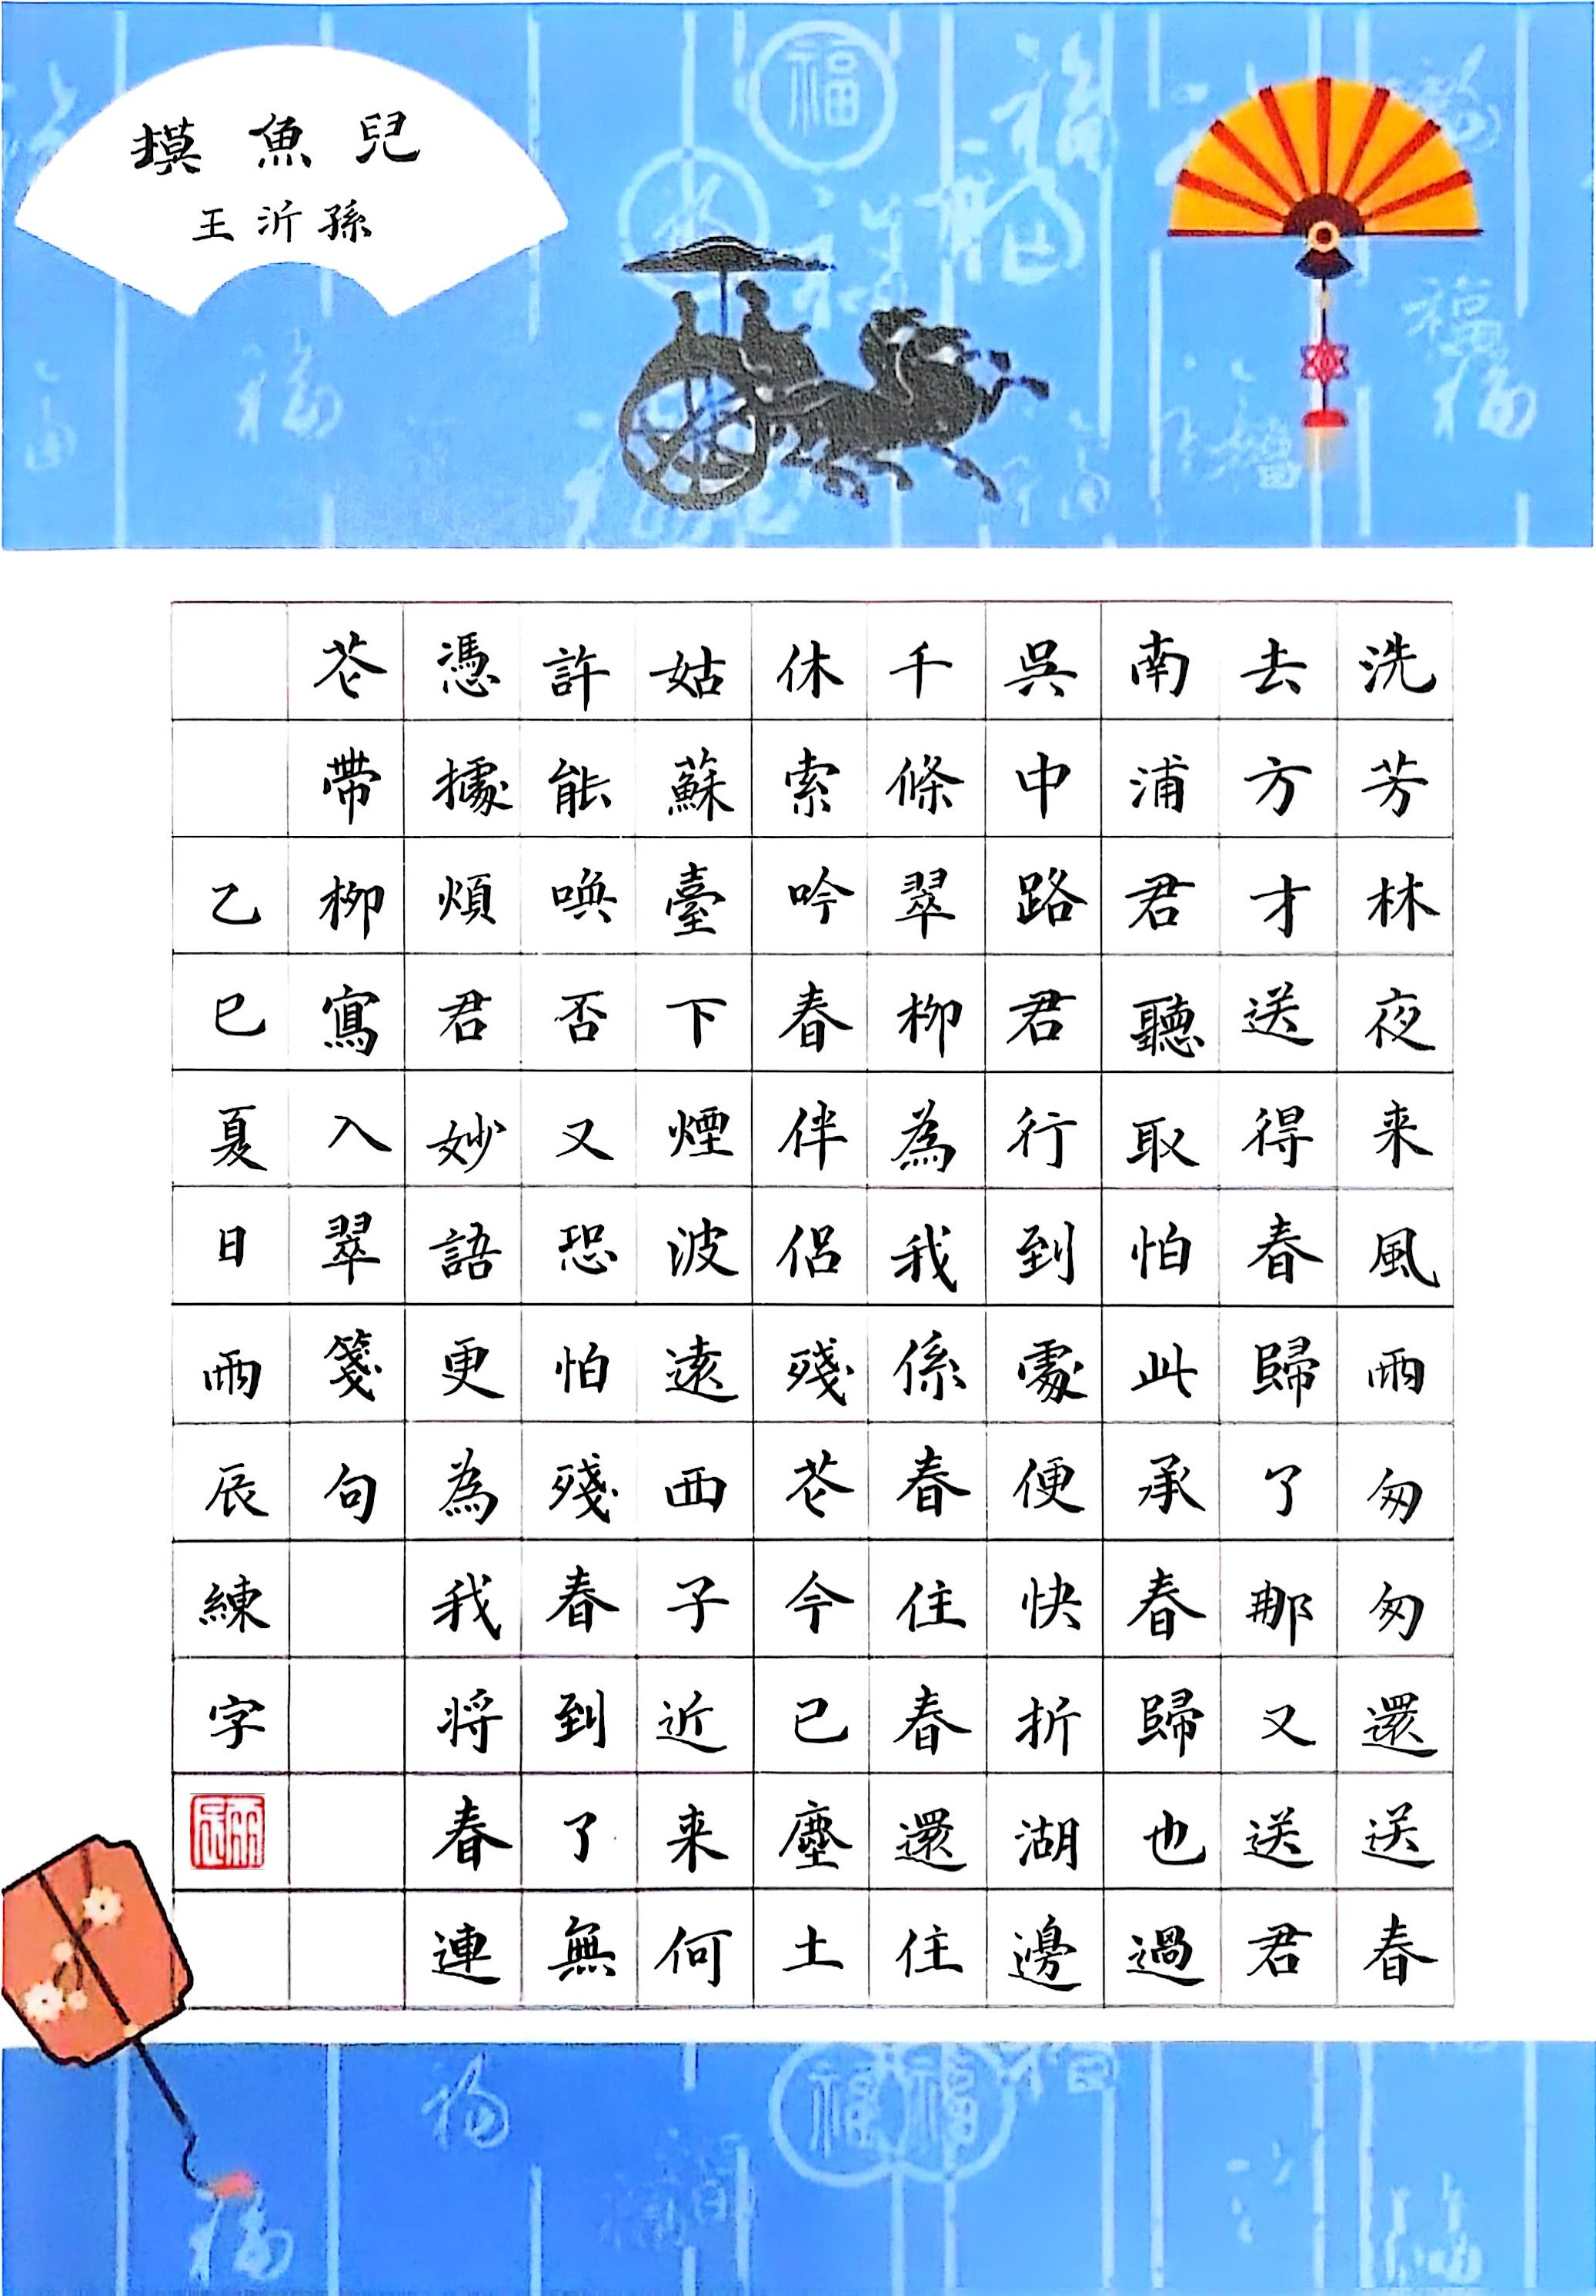 摸魚兒
王沂孫
洗芳林夜来風雨匆匆還送春
去方才送得春歸了那又送君
南浦君聽取怕此承春歸也過
吳中路君行到處便快折湖邊
千條翠柳為我係春住春還住
休索吟春伴侶殘花今已塵土
姑蘇臺下煙波遠西子近来何
許能喚否又恐怕殘春到了無
憑據煩君妙語更為我将春連
花帶柳寫入翠箋句
乙巳夏日雨辰練字
雨辰
福